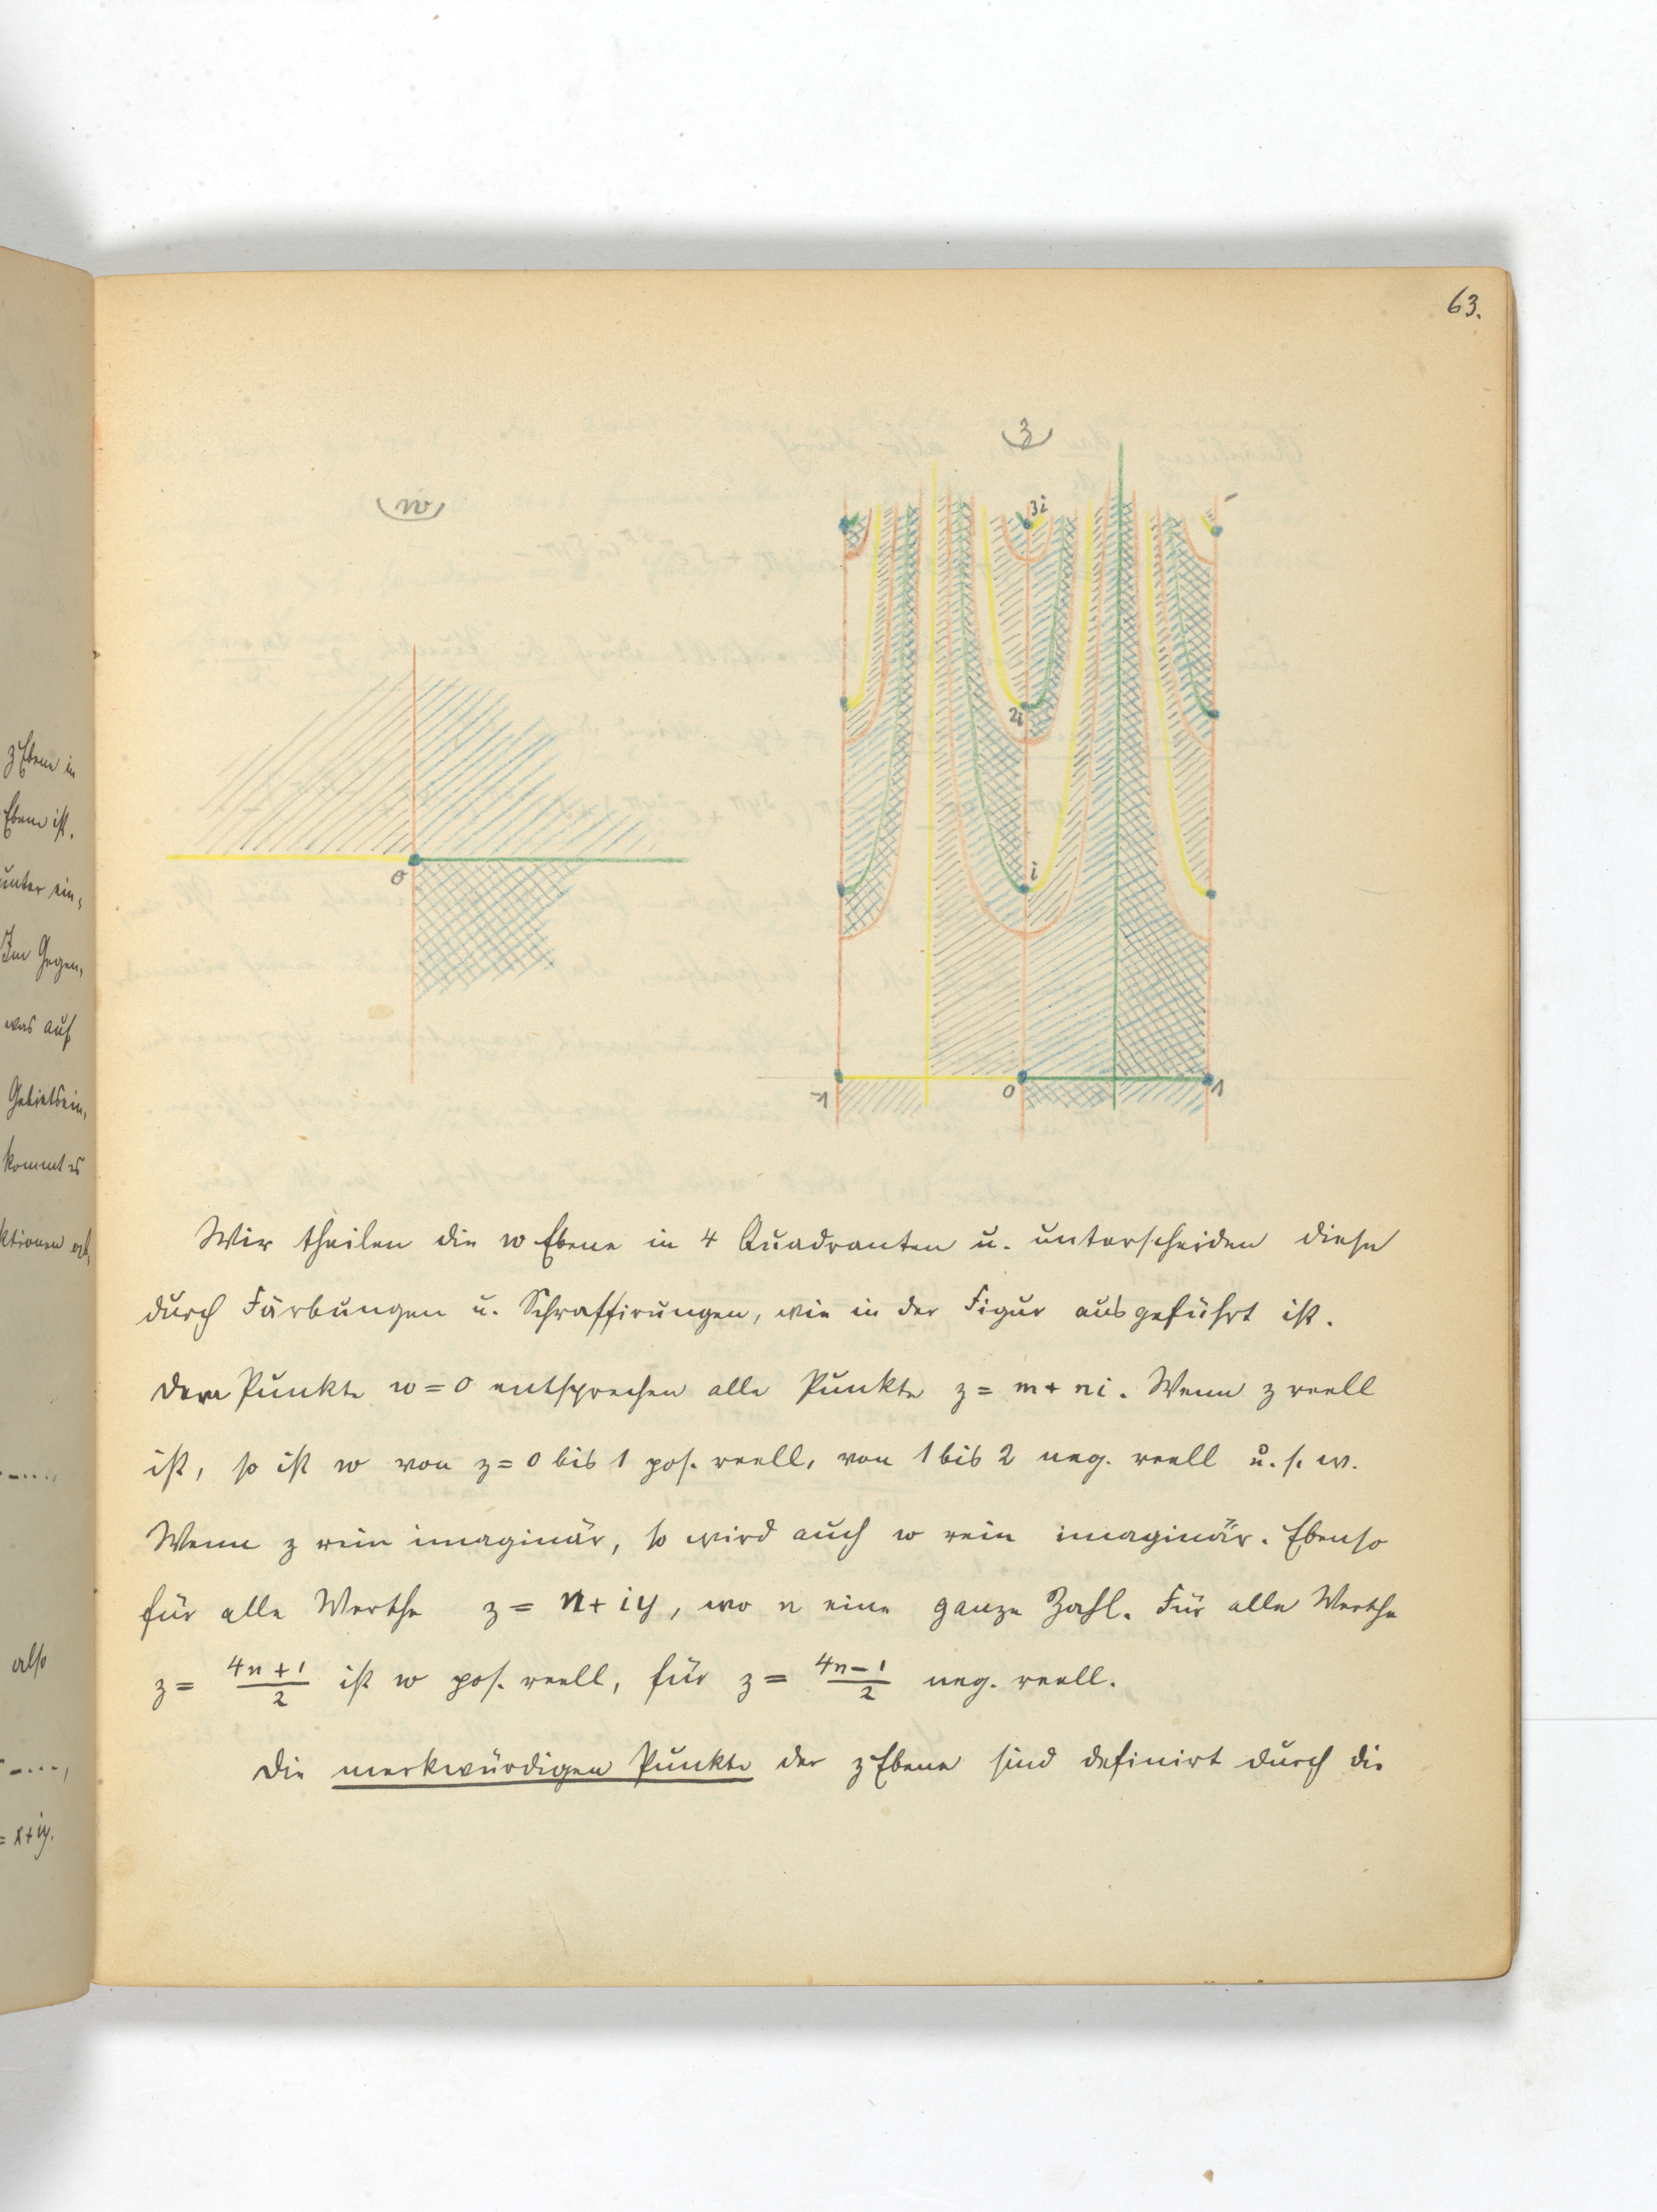 63.
z
w
3i
2i
i
0
-1
0
1
z Ebene in
Ebene ist.
unter ein,
Im Gegen,
was auf
Gebietsein,
kommt es
ktionen
also
= x+iy.
Wir theilen die w Ebene in 4 Quadranten u. unterscheiden diese
durch Färbungen u. Schraffirungen, wie in der Figur ausgeführt ist.
Dem Punkte w = 0 entsprechen alle Punkte z = m + ni. Wenn z reell
ist, so ist w von z = 0 bis 1 pos. reell, von 1 bis 2 neg. reell u. s. w.
Wenn z rein imaginär, so wird auch w rein imaginär. Ebenso
für alle Werthe z = n + iy, wo n eine ganze Zahl. Für alle Werthe
z = (4n + 1)/2 ist w pos. reell, für z = (4n − 1)/2 neg. reell.
Die merkwürdigen Punkte der z Ebene sind definirt durch die